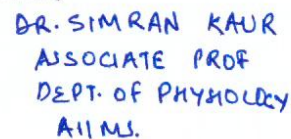 DR. SIMRAN KAUR
ASSOCIATE PROF
DEPT. OF PHYSIOLOGY
AIIMS.